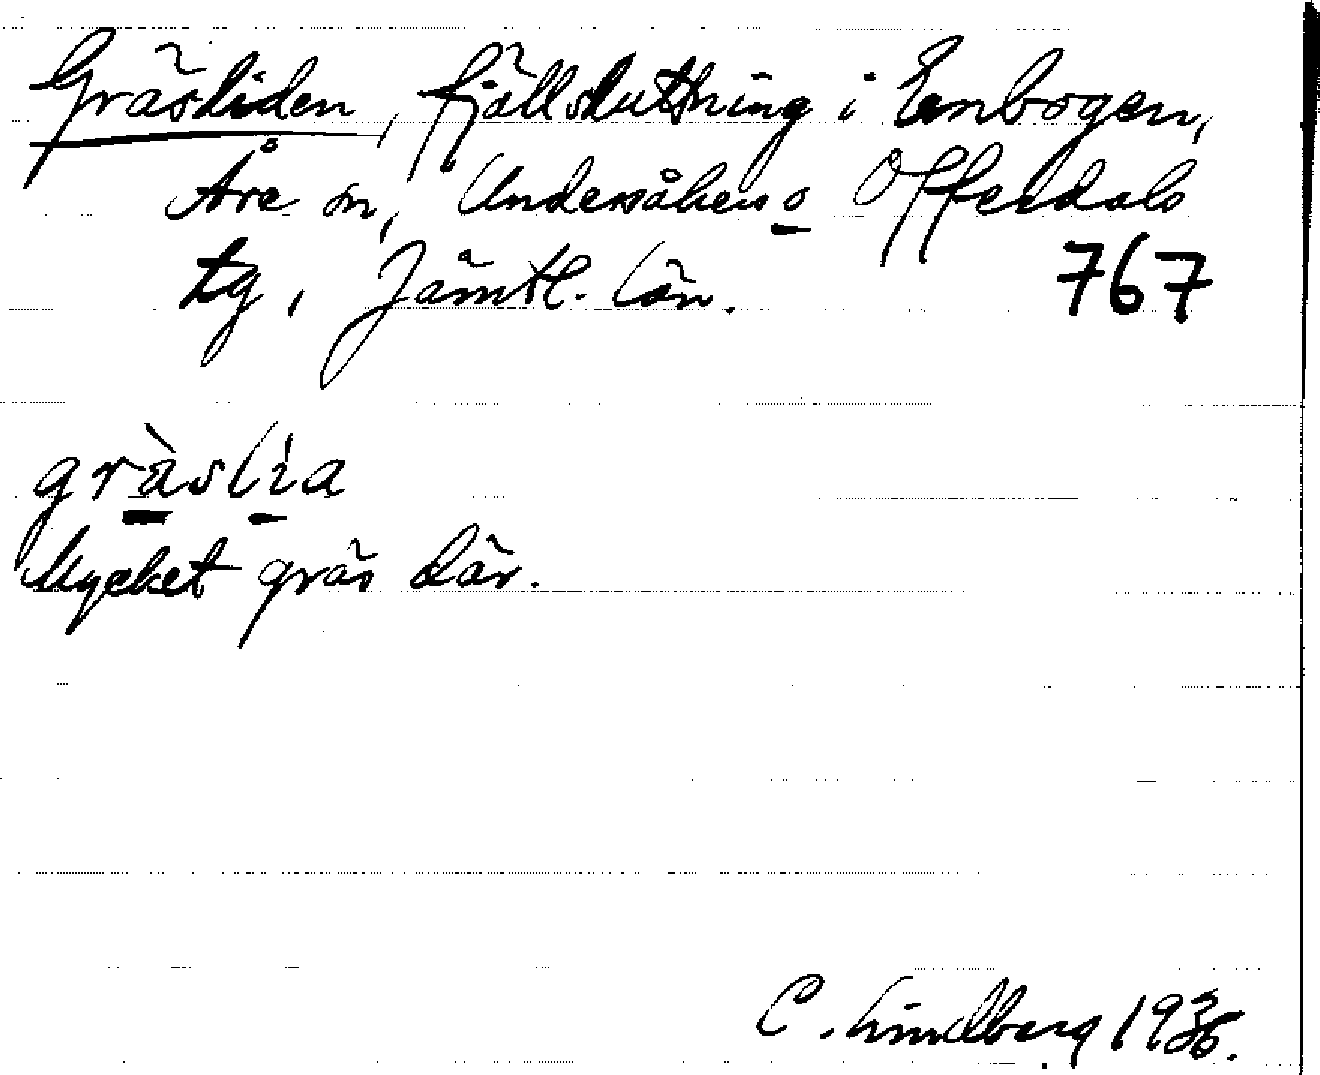 Gräsliden, fjällsluttning i Enbogen,
Åre sn, Undersåkers o Offerdals
tg, Jämtl. län. 767
gràslìa
Mycket gräs där.
C. Lindberg 1936.